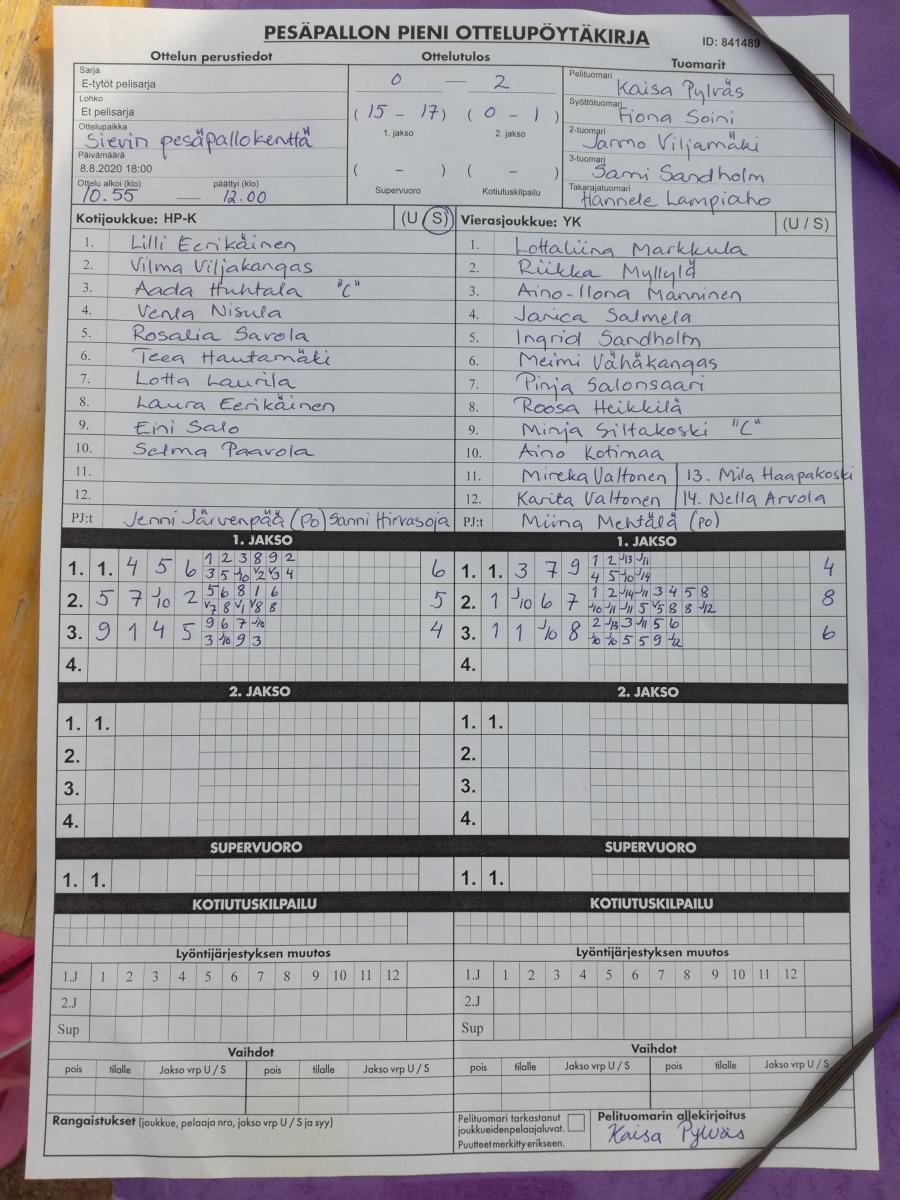 PESÄPALLON PIENI OTTELUPÖYTÄKIRJA
ID: 841489
Ottelun perustiedot
Sarja
E-tytöt pelisarja
Lohko
Et pelisarja
Ottelupaikka
Sievin pesäpallokenttä
Päivämäärä
8.8.2020 18:00
Ottelu alkoi (klo) päättyi (klo)
10.55 — 12.00
Ottelutulos
0 — 2
( 15 - 17 ) ( 0 - 1 )
1. jakso 2. jakso
( - ) ( - )
Supervuoro Kotiutuskilpailu
Tuomarit
Pelituomari
Kaisa Pylväs
Syöttötuomari
Fiona Soini
2-tuomari
Jarmo Viljamäki
3-tuomari
Sami Sandholm
Takarajatuomari
Hannele Lampiaho
Kotijoukkue: HP-K (U / S)
1. Lilli Eerikäinen
2. Vilma Viljakangas
3. Aada Huhtala "C"
4. Venla Nisula
5. Rosalia Savola
6. Teea Hautamäki
7. Lotta Laurila
8. Laura Eerikäinen
9. Eini Salo
10. Selma Paavola
11.
12.
PJ:t Jenni Järvenpää (PO) Sanni Hirvasoja
Vierasjoukkue: YK (U / S)
1. Lottaliina Markkula
2. Riikka Myllylä
3. Aino-Ilona Manninen
4. Janica Salmela
5. Ingrid Sandholm
6. Meimi Vähäkangas
7. Pinja Salonsaari
8. Roosa Heikkilä
9. Minja Siltakoski "C"
10. Aino Kotimaa
11. Mireka Valtonen | 13. Mila Haapakoski
12. Karita Valtonen | 14. Nella Arvola
PJ:t Miina Mehtälä (PO)
1. JAKSO
1. 1. 4 5 6 1 2 3 8 9 2 6
3 5 J10 V2 V3 4
2. 5 7 J10 2 5 6 8 1 6 5
V7 8 V1 V8 8
3. 9 1 4 5 9 6 7 J10 4
3 J10 9 3
4.
1. JAKSO
1. 1. 3 7 9 1 2 J13 J11 4
4 5 J10 J14
2. 1 J10 6 7 1 2 J14 J11 3 4 5 8 8
J10 J11 J11 5 V5 8 8 J12
3. 1 1 J10 8 2 J13 3 J11 5 6 6
J10 J10 5 5 9 J12
4.
2. JAKSO
1. 1.
2.
3.
4.
2. JAKSO
1. 1.
2.
3.
4.
SUPERVUORO
1. 1.
SUPERVUORO
1. 1.
KOTIUTUSKILPAILU
KOTIUTUSKILPAILU
Lyöntijärjestyksen muutos
1.J 1 2 3 4 5 6 7 8 9 10 11 12
2.J
Sup
Lyöntijärjestyksen muutos
1.J 1 2 3 4 5 6 7 8 9 10 11 12
2.J
Sup
Vaihdot
pois tilalle Jakso vrp U / S pois tilalle Jakso vrp U / S
Vaihdot
pois tilalle Jakso vrp U / S pois tilalle Jakso vrp U / S
Rangaistukset (joukkue, pelaaja nro, jakso vrp U / S ja syy)
Pelituomari tarkastanut
joukkueidenpelaajaluvat.
Puutteet merkitty erikseen.
Pelituomarin allekirjoitus
Kaisa Pylväs